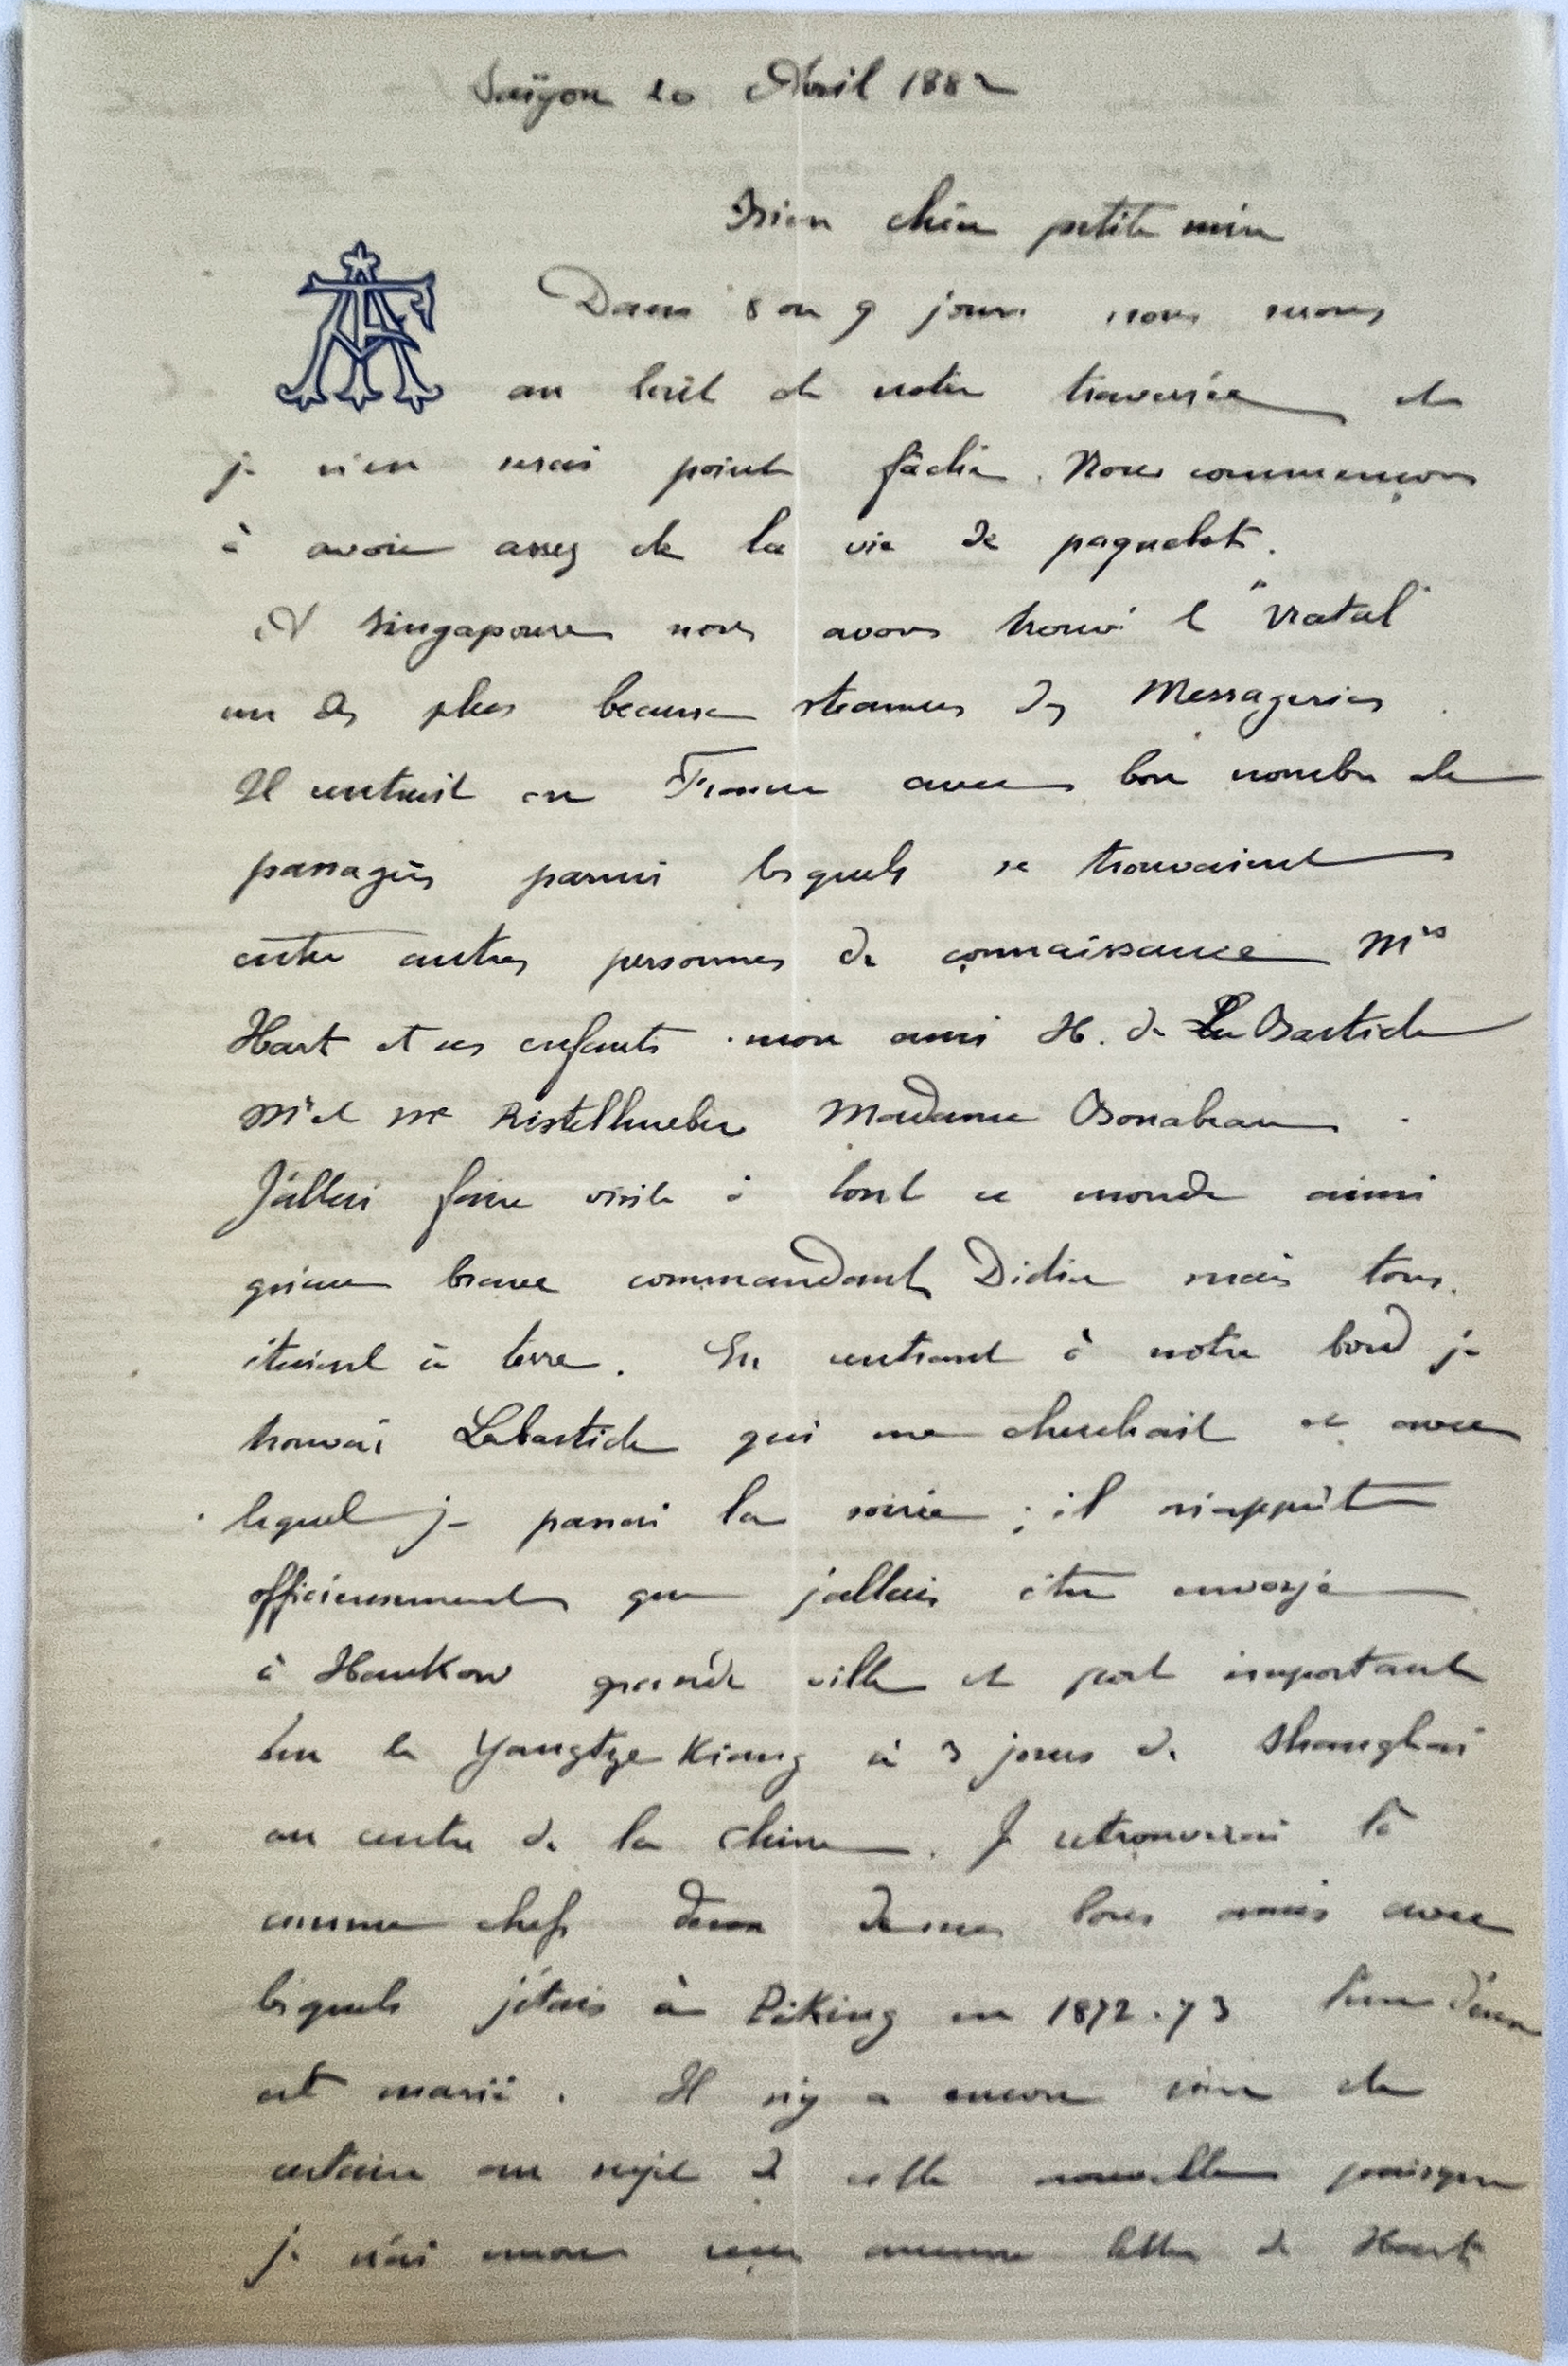 Saïgon 20 Avril 1882
Bien chère petite mère
AF
Dans 8 ou 9 jours nous serons
au bout de notre traversée et
je n'en serai point fâché. Nous commençons
à avoir assez de la vie de paquebot.
A Singapoure nous avons trouvé le "Natal"
un des plus beaux steamers des Messageries.
Il rentrait en France avec bon nombre de
passagers parmi lesquels se trouvaient
entre autres personnes de connaissance Mrs
Hart et ses enfants mon ami H. de La Bastide
Mr et Me Ristelhueber Madame Bonabeau.
J'allai faire visite à tout ce monde ainsi
qu'au brave commandant Didier mais tous
étaient à terre. En rentrant à notre bord je
trouvai Labastide qui me cherchait et avec
lequel je passai la soirée ; il m'apprit
officieusement que j'allais être envoyé
à Hankow grande ville et port important
sur le Yangtze Kiang à 3 jours de Shanghai
au centre de la Chine. Je retrouverai là
comme chefs deux de mes bons amis avec
lesquels j'étais à Péking en 1872.73 l'un d'eux
est marié. Il n'y a encore rien de
certain au sujet de cette nouvelle puisque
je n'ai encore reçu aucune lettre de Hart